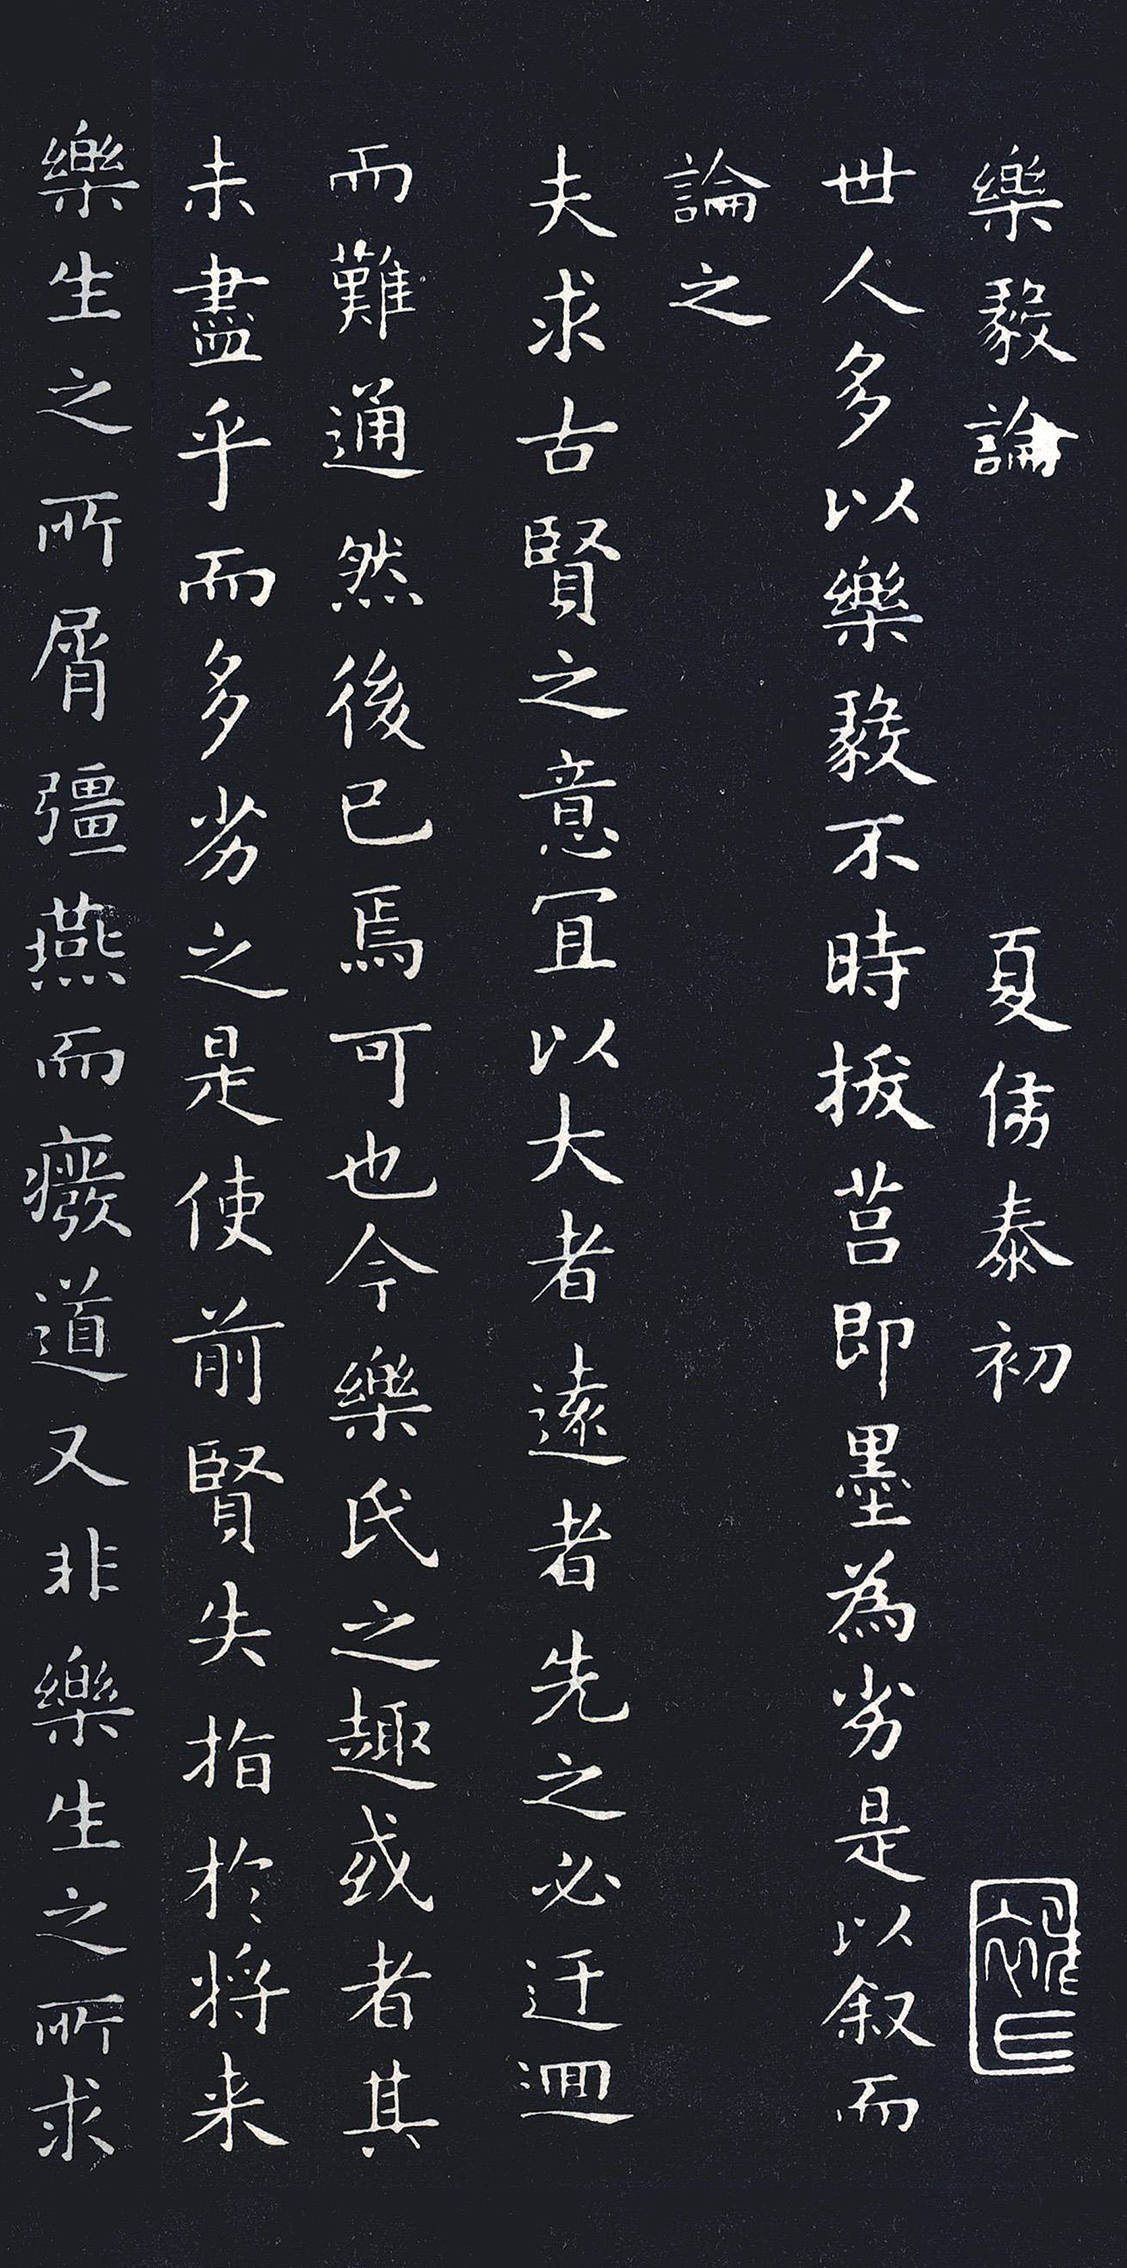 樂毅論 夏侯泰初
世人多以樂毅不時拔莒即墨為劣是以叙而
論之
夫求古賢之意冝以大者遠者先之必迂迴
而難通然後已焉可也今樂氏之趣或者其
未盡乎而多劣之是使前賢失指於将来
樂生之所屑彊燕而癈道又非樂生之所求